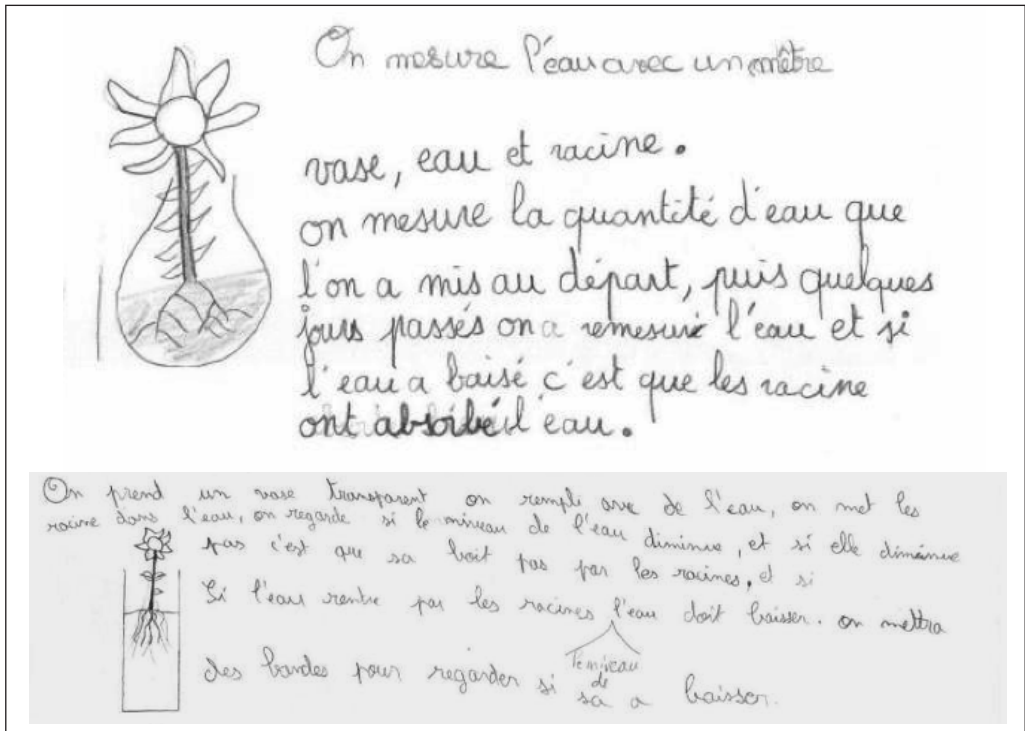 On mesure l'eau avec un mètre
vase, eau et racine.
on mesure la quantité d'eau que
l'on a mis au départ, puis quelques
jours passés on a remesuré l'eau et si
l'eau a baisé c'est que les racine
ont absorbé l'eau.
On prend un vase transparent on rempli avec de l'eau, on met les
racine dans l'eau, on regarde si le niveau de l'eau diminue, et si elle diminue
pas c'est que sa boit pas par les racines, et si
Si l'eau rentre par les racines l'eau doit baisser. on mettra
le niveau
de
des bandes pour regarder si sa a baisser.